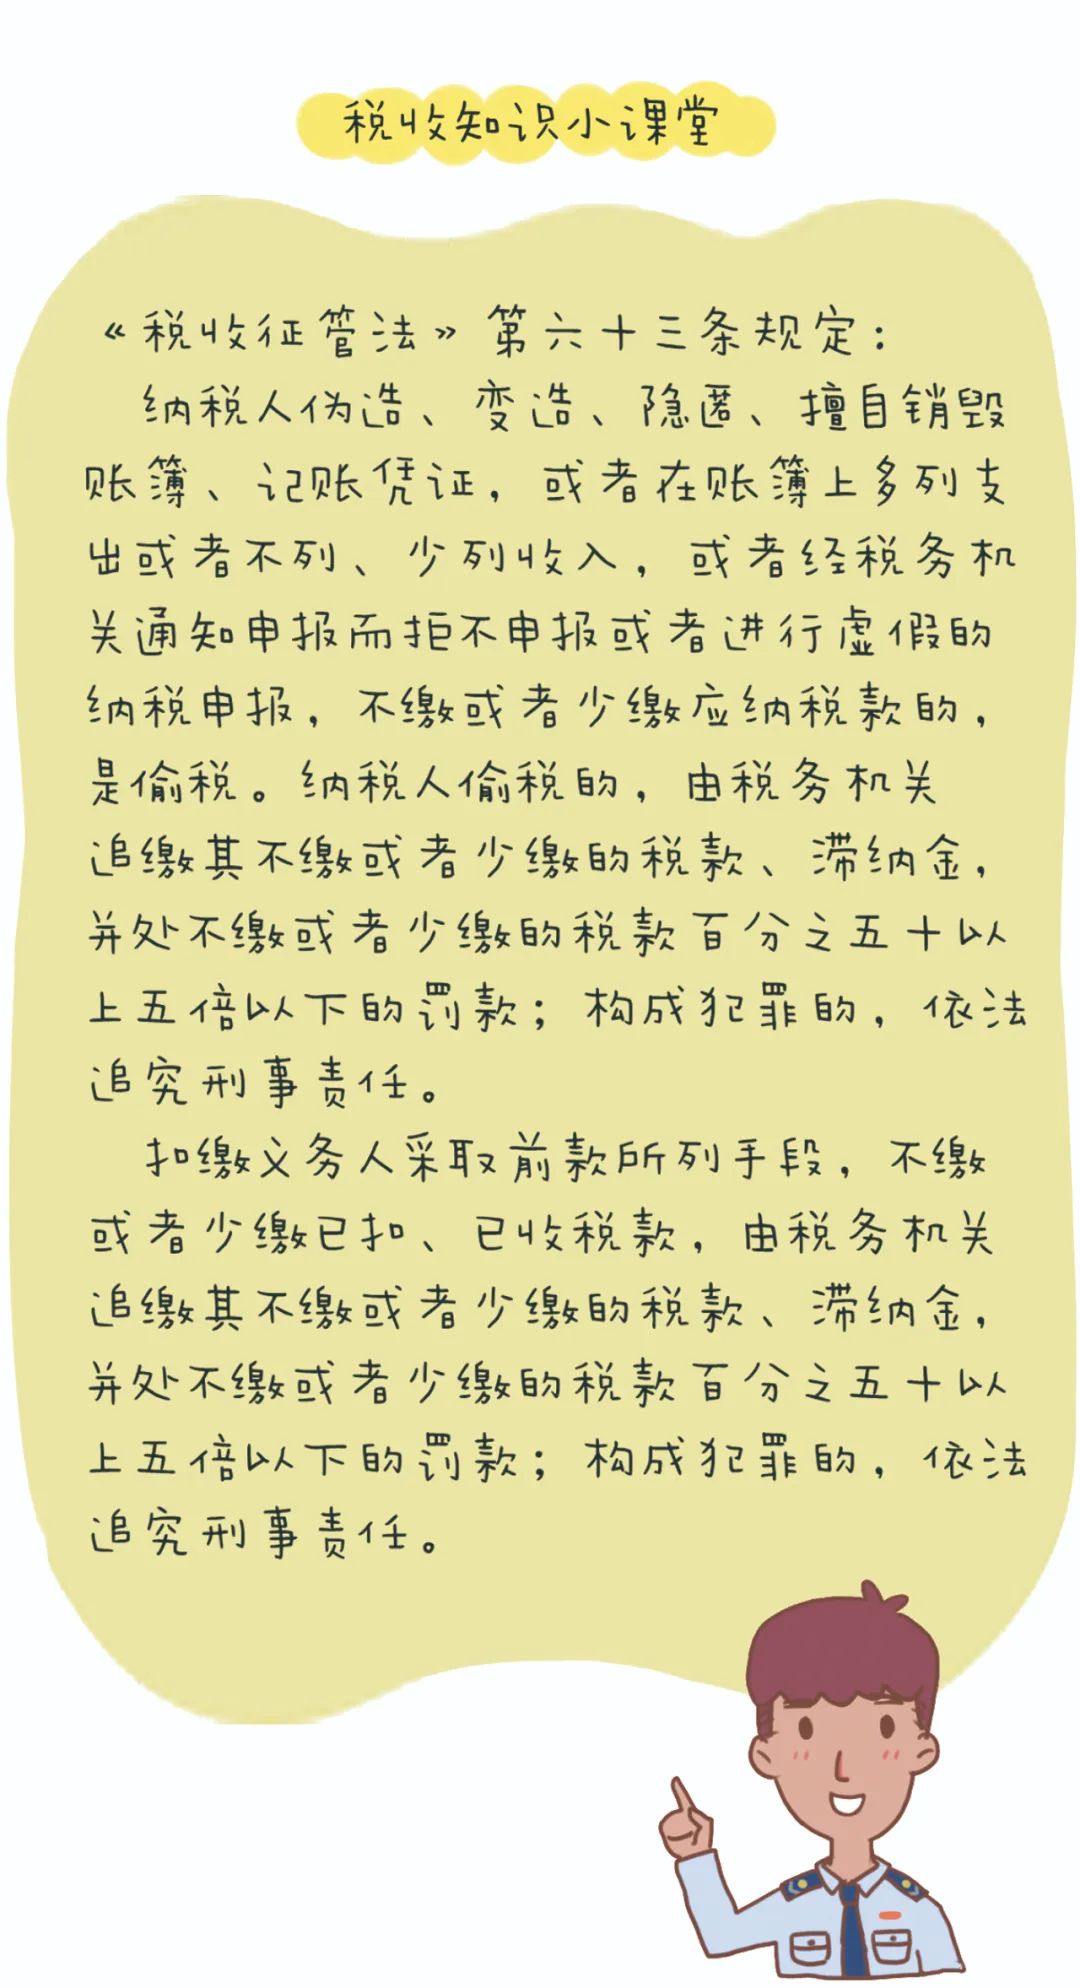 税收知识小课堂
《税收征管法》第六十三条规定：
纳税人伪造、变造、隐匿、擅自销毁
账簿、记账凭证，或者在账簿上多列支
出或者不列、少列收入，或者经税务机
关通知申报而拒不申报或者进行虚假的
纳税申报，不缴或者少缴应纳税款的，
是偷税。纳税人偷税的，由税务机关
追缴其不缴或者少缴的税款、滞纳金，
并处不缴或者少缴的税款百分之五十以
上五倍以下的罚款；构成犯罪的，依法
追究刑事责任。
扣缴义务人采取前款所列手段，不缴
或者少缴已扣、已收税款，由税务机关
追缴其不缴或者少缴的税款、滞纳金，
并处不缴或者少缴的税款百分之五十以
上五倍以下的罚款；构成犯罪的，依法
追究刑事责任。